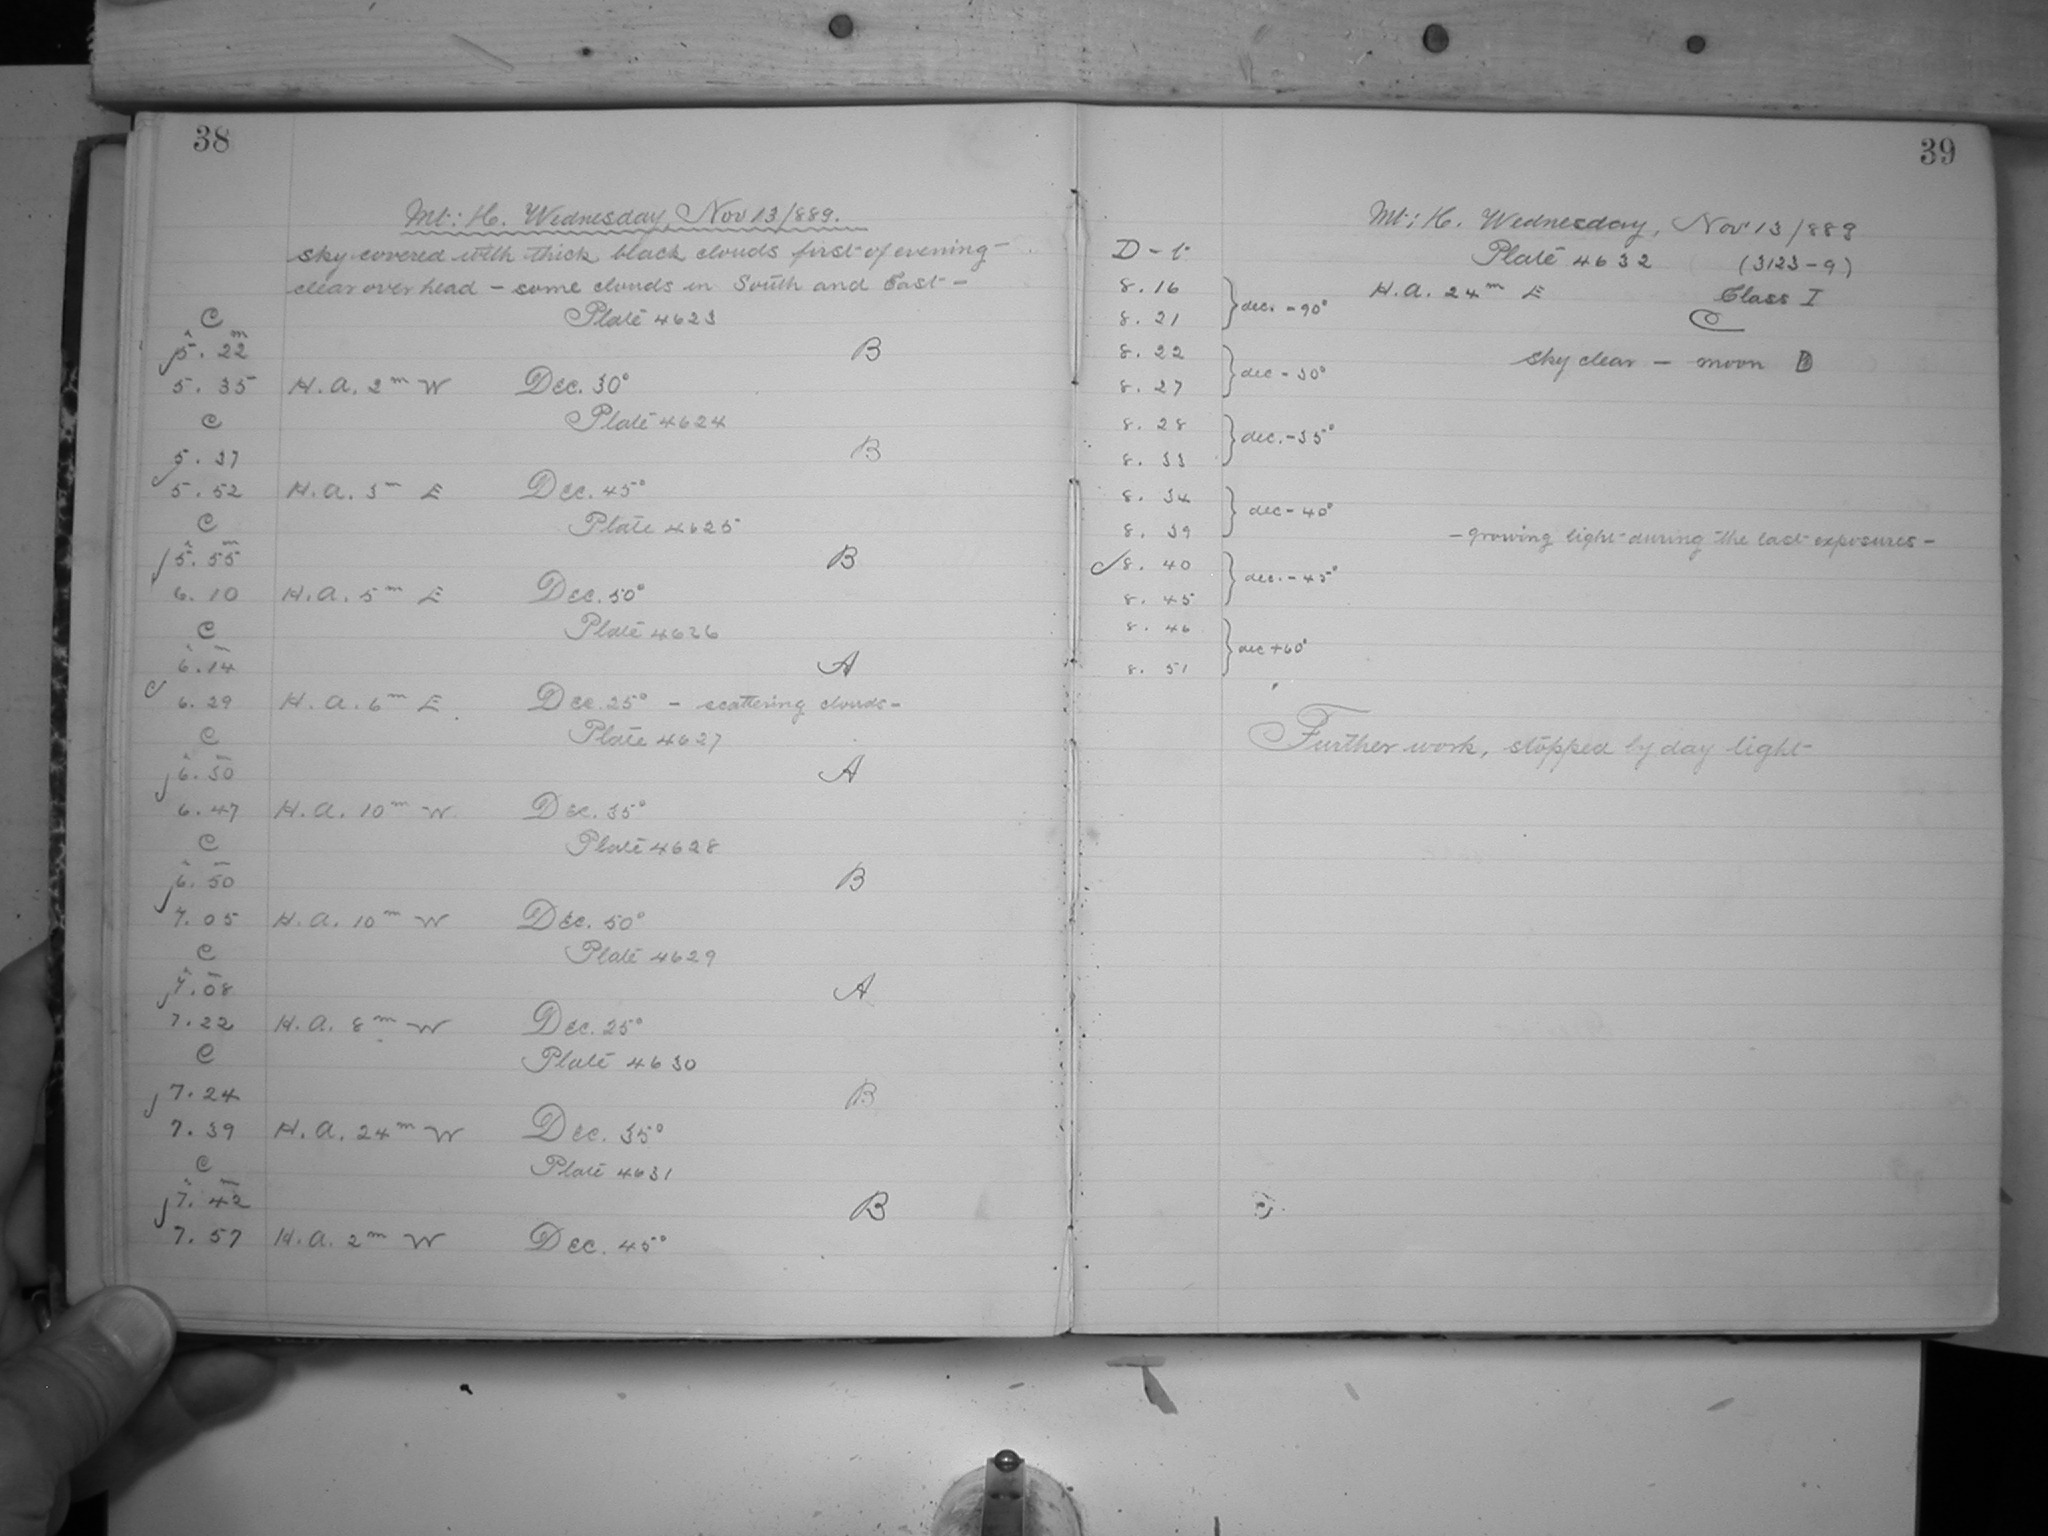 38
Mt: H. Wednesday, Nov 13/889.
sky covered with thick black clouds first of evening –
clear over head – some clouds in South and East –
C Plate 4623
5. 22 B
5. 35 H.A. 2m W Dec. 30°
C Plate 4624
5. 37 B
5. 52 H.A. 3m E Dec. 45°
C Plate 4625
5. 55 B
6. 10 H.A. 5m E Dec. 50°
C Plate 4626
6. 14 A
6. 29 H.A. 6m E. Dec. 25° – scattering clouds –
C Plate 4627
6. 30 A
6. 47 H.A. 10m W. Dec. 35°
C Plate 4628
6. 50 B
7. 05 H.A. 10m W Dec. 50°
C Plate 4629
7. 08 A
7. 22 H.A. 8m W Dec. 25°
C Plate 4630
7. 24 B
7. 39 H.A. 24m W Dec. 35°
C Plate 4631
7. 42 B
7. 57 H.A. 2m W Dec. 45°
39
Mt: H. Wednesday, Nov 13/889
D – t Plate 4632 (3123–9)
8. 16 H.A. 24m E Class I
dec. –90°
8. 21 C
8. 22 sky clear – moon
dec – 30°
8. 27
8. 28
dec. –35°
8. 33
8. 34
dec – 40°
8. 39 – growing light during the last exposures –
8. 40
dec. – 45°
8. 45
8. 46
dec +60°
8. 51
Further work, stopped by day light